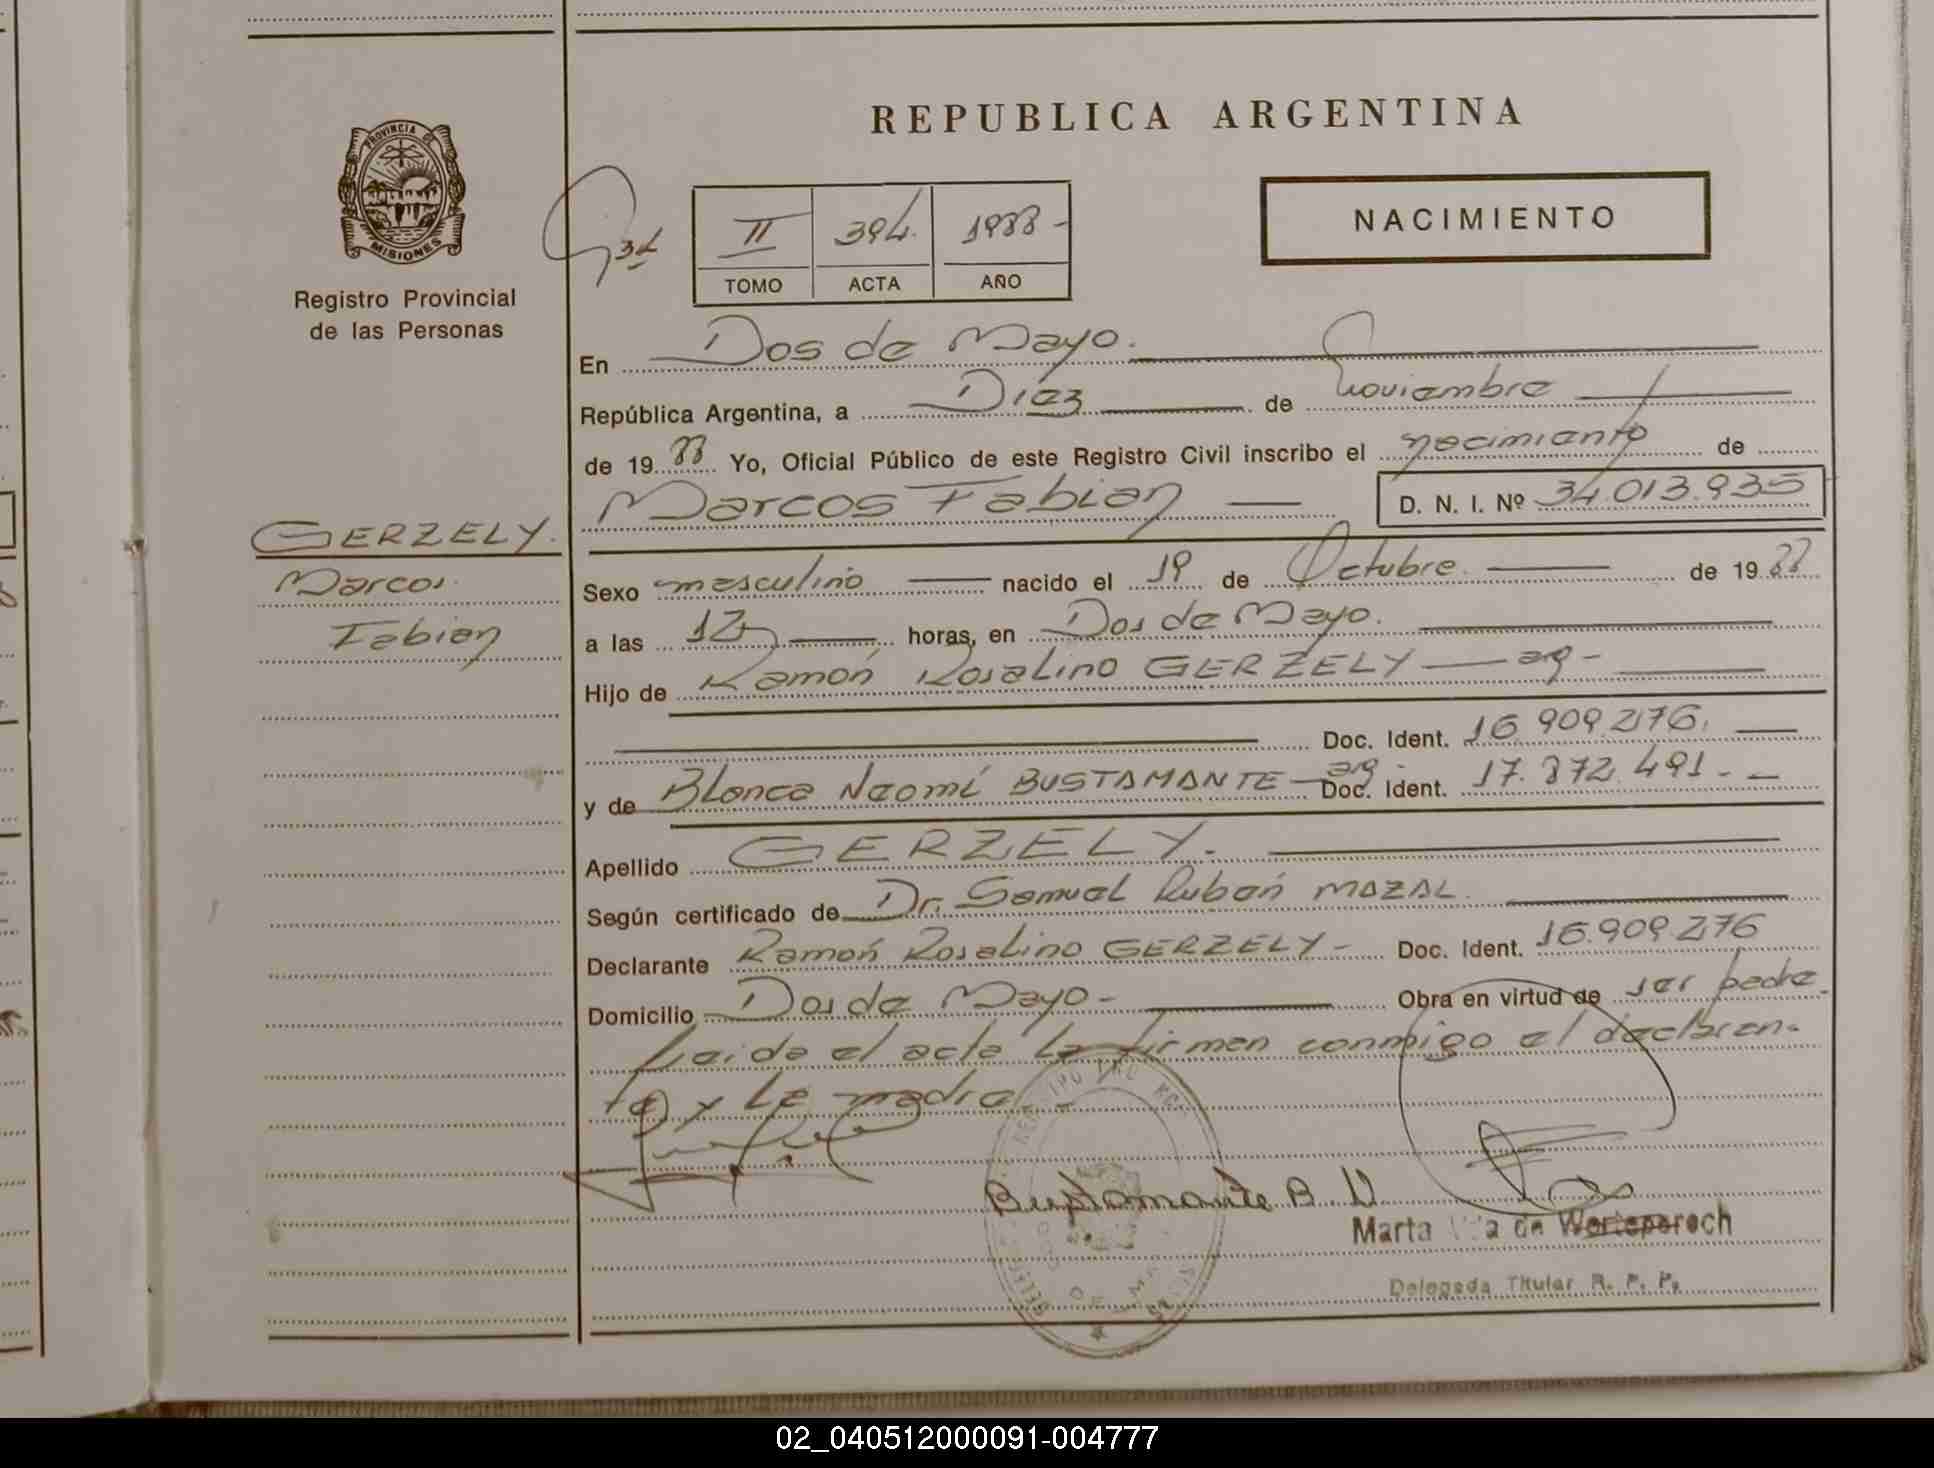 REPUBLICA ARGENTINA
PROVINCIA
MISIONES
Registro Provincial
de las Personas
II 394. 1988 -
TOMO ACTA AÑO
NACIMIENTO
En Dos de Mayo.
República Argentina, a Diez de Noviembre
de 19 88 Yo, Oficial Público de este Registro Civil inscribo el nacimiento de
Marcos Fabian D. N. I. Nº 34.013.935
GERZELY.
Marcos
Fabian
Sexo masculino nacido el 19 de Octubre de 19 88
a las 12 horas, en Dos de Mayo.
Hijo de Ramón Rosalino GERZELY — arg -
Doc. Ident. 16.909.276.
y de Blanca Naomí BUSTAMANTE — arg - Doc. Ident. 17.872.491. -
Apellido GERZELY.
Según certificado de Dr. Samuel Rubén MAZAL.
Declarante Ramón Rosalino GERZELY - Doc. Ident. 16.909.276
Domicilio Dos de Mayo - Obra en virtud de ser padre.
Leida el acta la firman conmigo el declaran-
te y la madre -
Bustamante B. N
Marta de
Delegada Titular R. P. P.
02_040512000091-004777